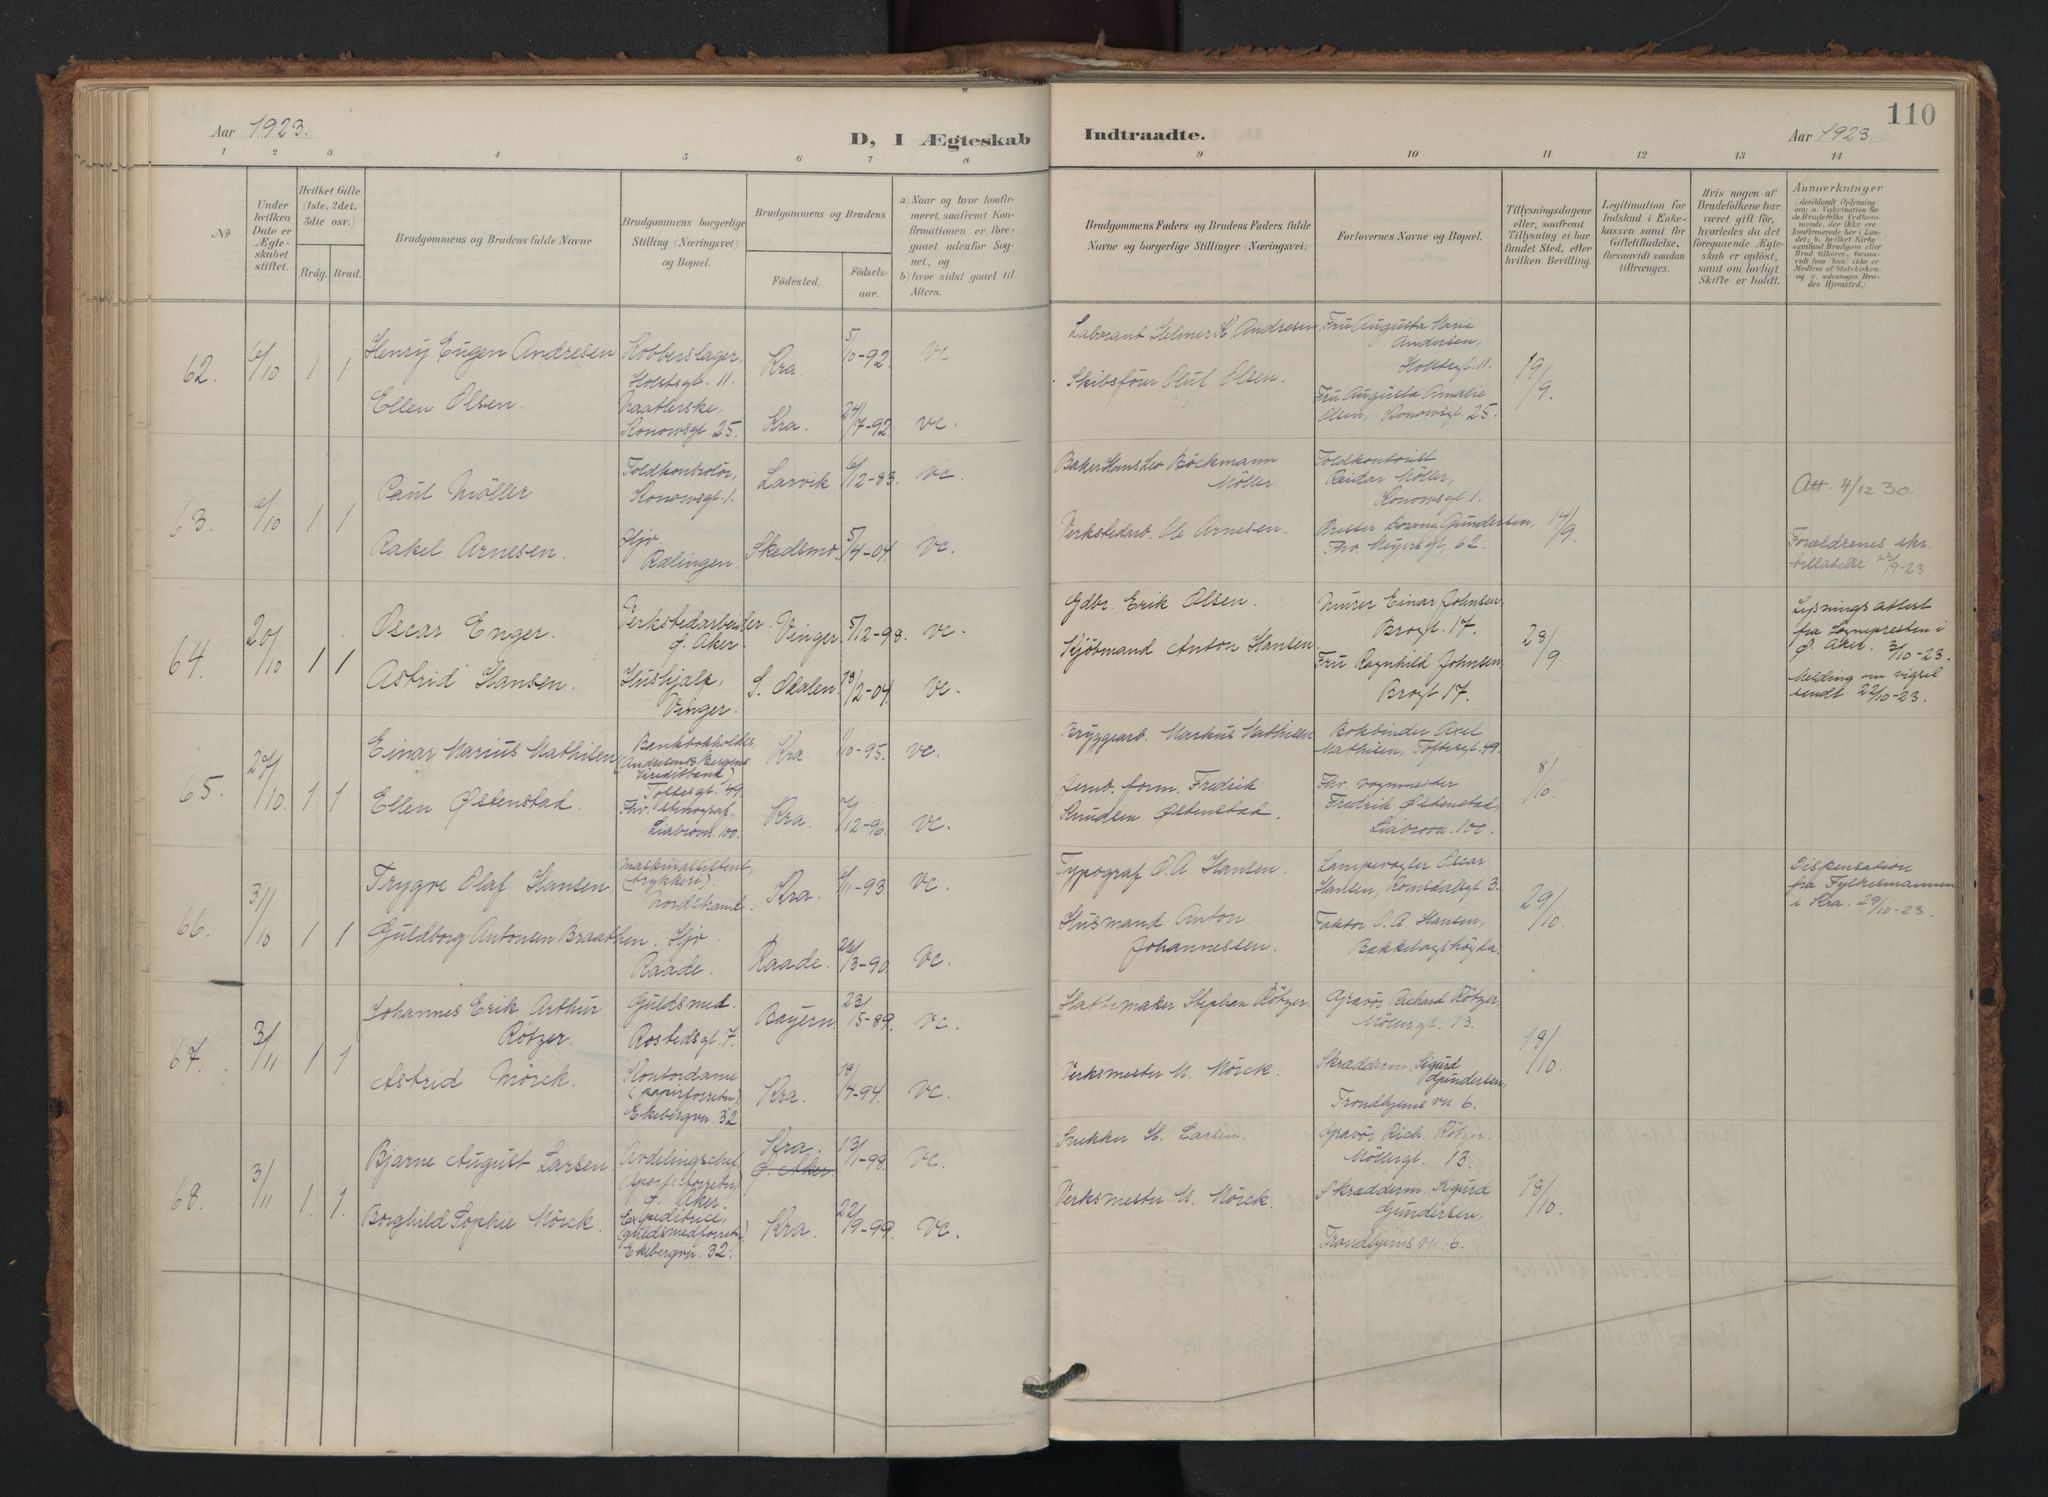 Aar 1923.
D, I Ægteskab
Indtraadte.
110
Aar 1923
1 2 3 4 5 6 7 8 9 10 11 12 13 14
No
Under hvilken Dato er Ægteskabet stiftet.
Hvilket Gifte (1ste, 2det, 3die osv.)
Brdg. Brud.
Brudgommens og Brudens fulde Navne
Brudgommens borgerlige Stilling (Næringsvei) og Bopæl.
Brudgommens og Brudens
Födested.
Födselsaar.
a) Naar og hvor konfirmeret, saafremt Konfirmationen er foregaaet udenfor Sognet, og
b) hvor sidst gaaet til Alters.
Brudgommens Faders og Brudens Faders fulde Navne og borgerlige Stillinger (Næringsvei)
Forlovernes Navne og Bopæl.
Tillysningsdagene eller, saafremt Tillysning ei har fundet Sted, efter hvilken Bevilling.
Legitimation for Indskud i Enkekassen samt for Giftetilladelse, forsaavidt saadan tiltrænges.
Hvis nogen af Brudefolkene har været gift før, hvorledes da det foregaaende Ægteskab er opløst, samt om lovligt Skifte er holdt.
Anmerkninger
62. 6/10 1 1
Henry Eugen Andresen
Kobberslager, Holstsgt. 11.
Kra. 5/10-92. vc
Laborant Helmer K Andresen
Fru Augusta Marie Andersen, Holstsgt. 11.
19/9
Ellen Olsen.
Konowsgt. 25.
Kra. 24/7-92. vc.
Skibsförer Oluf Olsen.
Fru Augusta Amalie Olsen, Konowsgt. 25.
63. 6/10 1 1
Paul Möller
Toldkontrolör, Konowsgt. 1.
Larvik 6/12-83. vc.
Baker Hans Leo Böckmann Möller.
Reidar Möller, Konowsgt. 1.
Att. 4/12 30.
Rakel Arnesen.
Hjv. Rælingen.
Skedsmo. 5/4-04. vc.
Verkstedarb. Ole Arnesen.
Gundersen, Thv. Meyersgt. 62.
17/9
Forældrenes skr. tilladelse 22/9-23.
64. 20/10 1 1
Oscar Enger.
Verkstedarbeider. Ø. Aker.
Vinger 5/12-98. vc.
Gdbr. Erik Olsen.
Murer Einar Johnsen, Brogt. 17.
28/9
Lysningsattest fra Sognepresten i Ø. Aker. 3/10-23.
Melding om vigsel sendt 22/10-23.
Astrid Hansen.
Hushjælp, Vinger.
S. Odalen. 18/2-04. vc.
Kjöbmand Anton Hansen
Fru Ragnhild Johnsen, Brogt 17.
65. 27/10. 1 1
Einar Marius Mathisen
Bankbokholder, (Andresens & Bergens Kreditbank) Toftesgt. 49.
Kra /10-95. vc.
Bryggearb. Markus Mathisen
Bokbinder Axel Mathisen, Toftesgt. 49.
8/10
Ellen Østenstad.
Thv. stenograf, Liabrovn. 100.
Kra. /12-96. vc.
Jernb. form. Fredrik Knudsen Østenstad.
Fhv. vognmester Fredrik Østenstad, Liabrovn. 100.
66. 3/10 1 1
Trygve Olaf Hansen,
Maskinassistent, (trykkeri). Nordstrand.
Kra. /11-93 vc.
Typograf O. A. Hansen.
Oscar Hansen, Romsdalsgt. 3.
29/10.
Dispensation fra Fylkesmannen i Kra. 29/10-23.
Guldborg Antonsen Braathen.
Hjv. Raade.
Raade. 26/3-90. vc.
Husmand Anton Johannessen.
Faktor O. A. Hansen, Bækkelagshögda.
67. 3/11 1 1.
Johannes Erik Arthur Rötzer.
Guldsmed. Rostedsgt. 7.
Bayern. 23/5-89. vc.
Hattemaker Stephan Rötzer.
Gravör Richard Rötzer, Möllergt. 13.
18/10.
Astrid Mörck.
Kontordame (papirforretn.) Ekebergvn. 32
Kra. 18/4-94. vc.
Verksmester M. Mörck.
Skradderm. Sigurd Gundersen, Trondhjemsvn. 6.
68. 3/11 1. 1.
Bjarne August Larsen
Avdelingschef (sportsforretn.) Ø. Aker.
Kra. Ø. Aker. 13/1-98. vc.
Snekker H. Larsen.
Gravör Rich. Rötzer. Möllergt. 13.
18/10.
Borghild Sophie Mörck.
Expeditrice, (guldsmedforretn.) Ekebergvn. 32.
Kra. 22/9-99. vc.
Verksmester M. Mörck.
Skradderm. Sigurd Gundersen, Trondhjemsvn. 6.